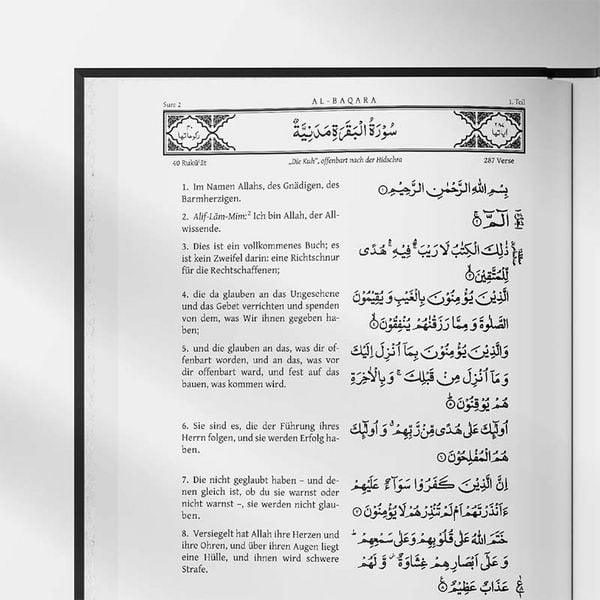 Sure 2
AL-BAQARA
1. Teil
سُوْرَةُ الْبَقَرَةِ مَدَنِيَّةٌ
40 Rukūʿāt
„Die Kuh“, offenbart nach der Hidschra
287 Verse
1. Im Namen Allahs, des Gnädigen, des
Barmherzigen.
2. Alif-Lām-Mīm:² Ich bin Allah, der All-
wissende.
3. Dies ist ein vollkommenes Buch; es
ist kein Zweifel darin: eine Richtschnur
für die Rechtschaffenen;
4. die da glauben an das Ungesehene
und das Gebet verrichten und spenden
von dem, was Wir ihnen gegeben ha-
ben;
5. und die glauben an das, was dir of-
fenbart worden, und an das, was vor
dir offenbart ward, und fest auf das
bauen, was kommen wird.
6. Sie sind es, die der Führung ihres
Herrn folgen, und sie werden Erfolg ha-
ben.
7. Die nicht geglaubt haben – und de-
nen gleich ist, ob du sie warnst oder
nicht warnst –, sie werden nicht glau-
ben.
8. Versiegelt hat Allah ihre Herzen und
ihre Ohren, und über ihren Augen liegt
eine Hülle, und ihnen wird schwere
Strafe.
بِسْمِ اللّٰهِ الرَّحْمٰنِ الرَّحِيْمِ ①
الٓمّٓ ②
ذٰلِكَ الْكِتٰبُ لَا رَيْبَ ۛ فِيْهِ ۛ هُدًى
لِّلْمُتَّقِيْنَ ③
الَّذِيْنَ يُؤْمِنُوْنَ بِالْغَيْبِ وَ يُقِيْمُوْنَ
الصَّلٰوةَ وَ مِمَّا رَزَقْنٰهُمْ يُنْفِقُوْنَ ④
وَالَّذِيْنَ يُؤْمِنُوْنَ بِمَآ اُنْزِلَ اِلَيْكَ
وَ مَآ اُنْزِلَ مِنْ قَبْلِكَ ۚ وَ بِالْاٰخِرَةِ
هُمْ يُوْقِنُوْنَ ⑤
اُولٰٓئِكَ عَلٰى هُدًى مِّنْ رَّبِّهِمْ ۗ وَ اُولٰٓئِكَ
هُمُ الْمُفْلِحُوْنَ ⑥
اِنَّ الَّذِيْنَ كَفَرُوْا سَوَآءٌ عَلَيْهِمْ
ءَاَنْذَرْتَهُمْ اَمْ لَمْ تُنْذِرْهُمْ لَا يُؤْمِنُوْنَ ⑦
خَتَمَ اللّٰهُ عَلٰى قُلُوْبِهِمْ وَعَلٰى سَمْعِهِمْ ۖ
وَ عَلٰٓى اَبْصَارِهِمْ غِشَاوَةٌ ۫ وَّ لَهُمْ
عَذَابٌ عَظِيْمٌ ⑧